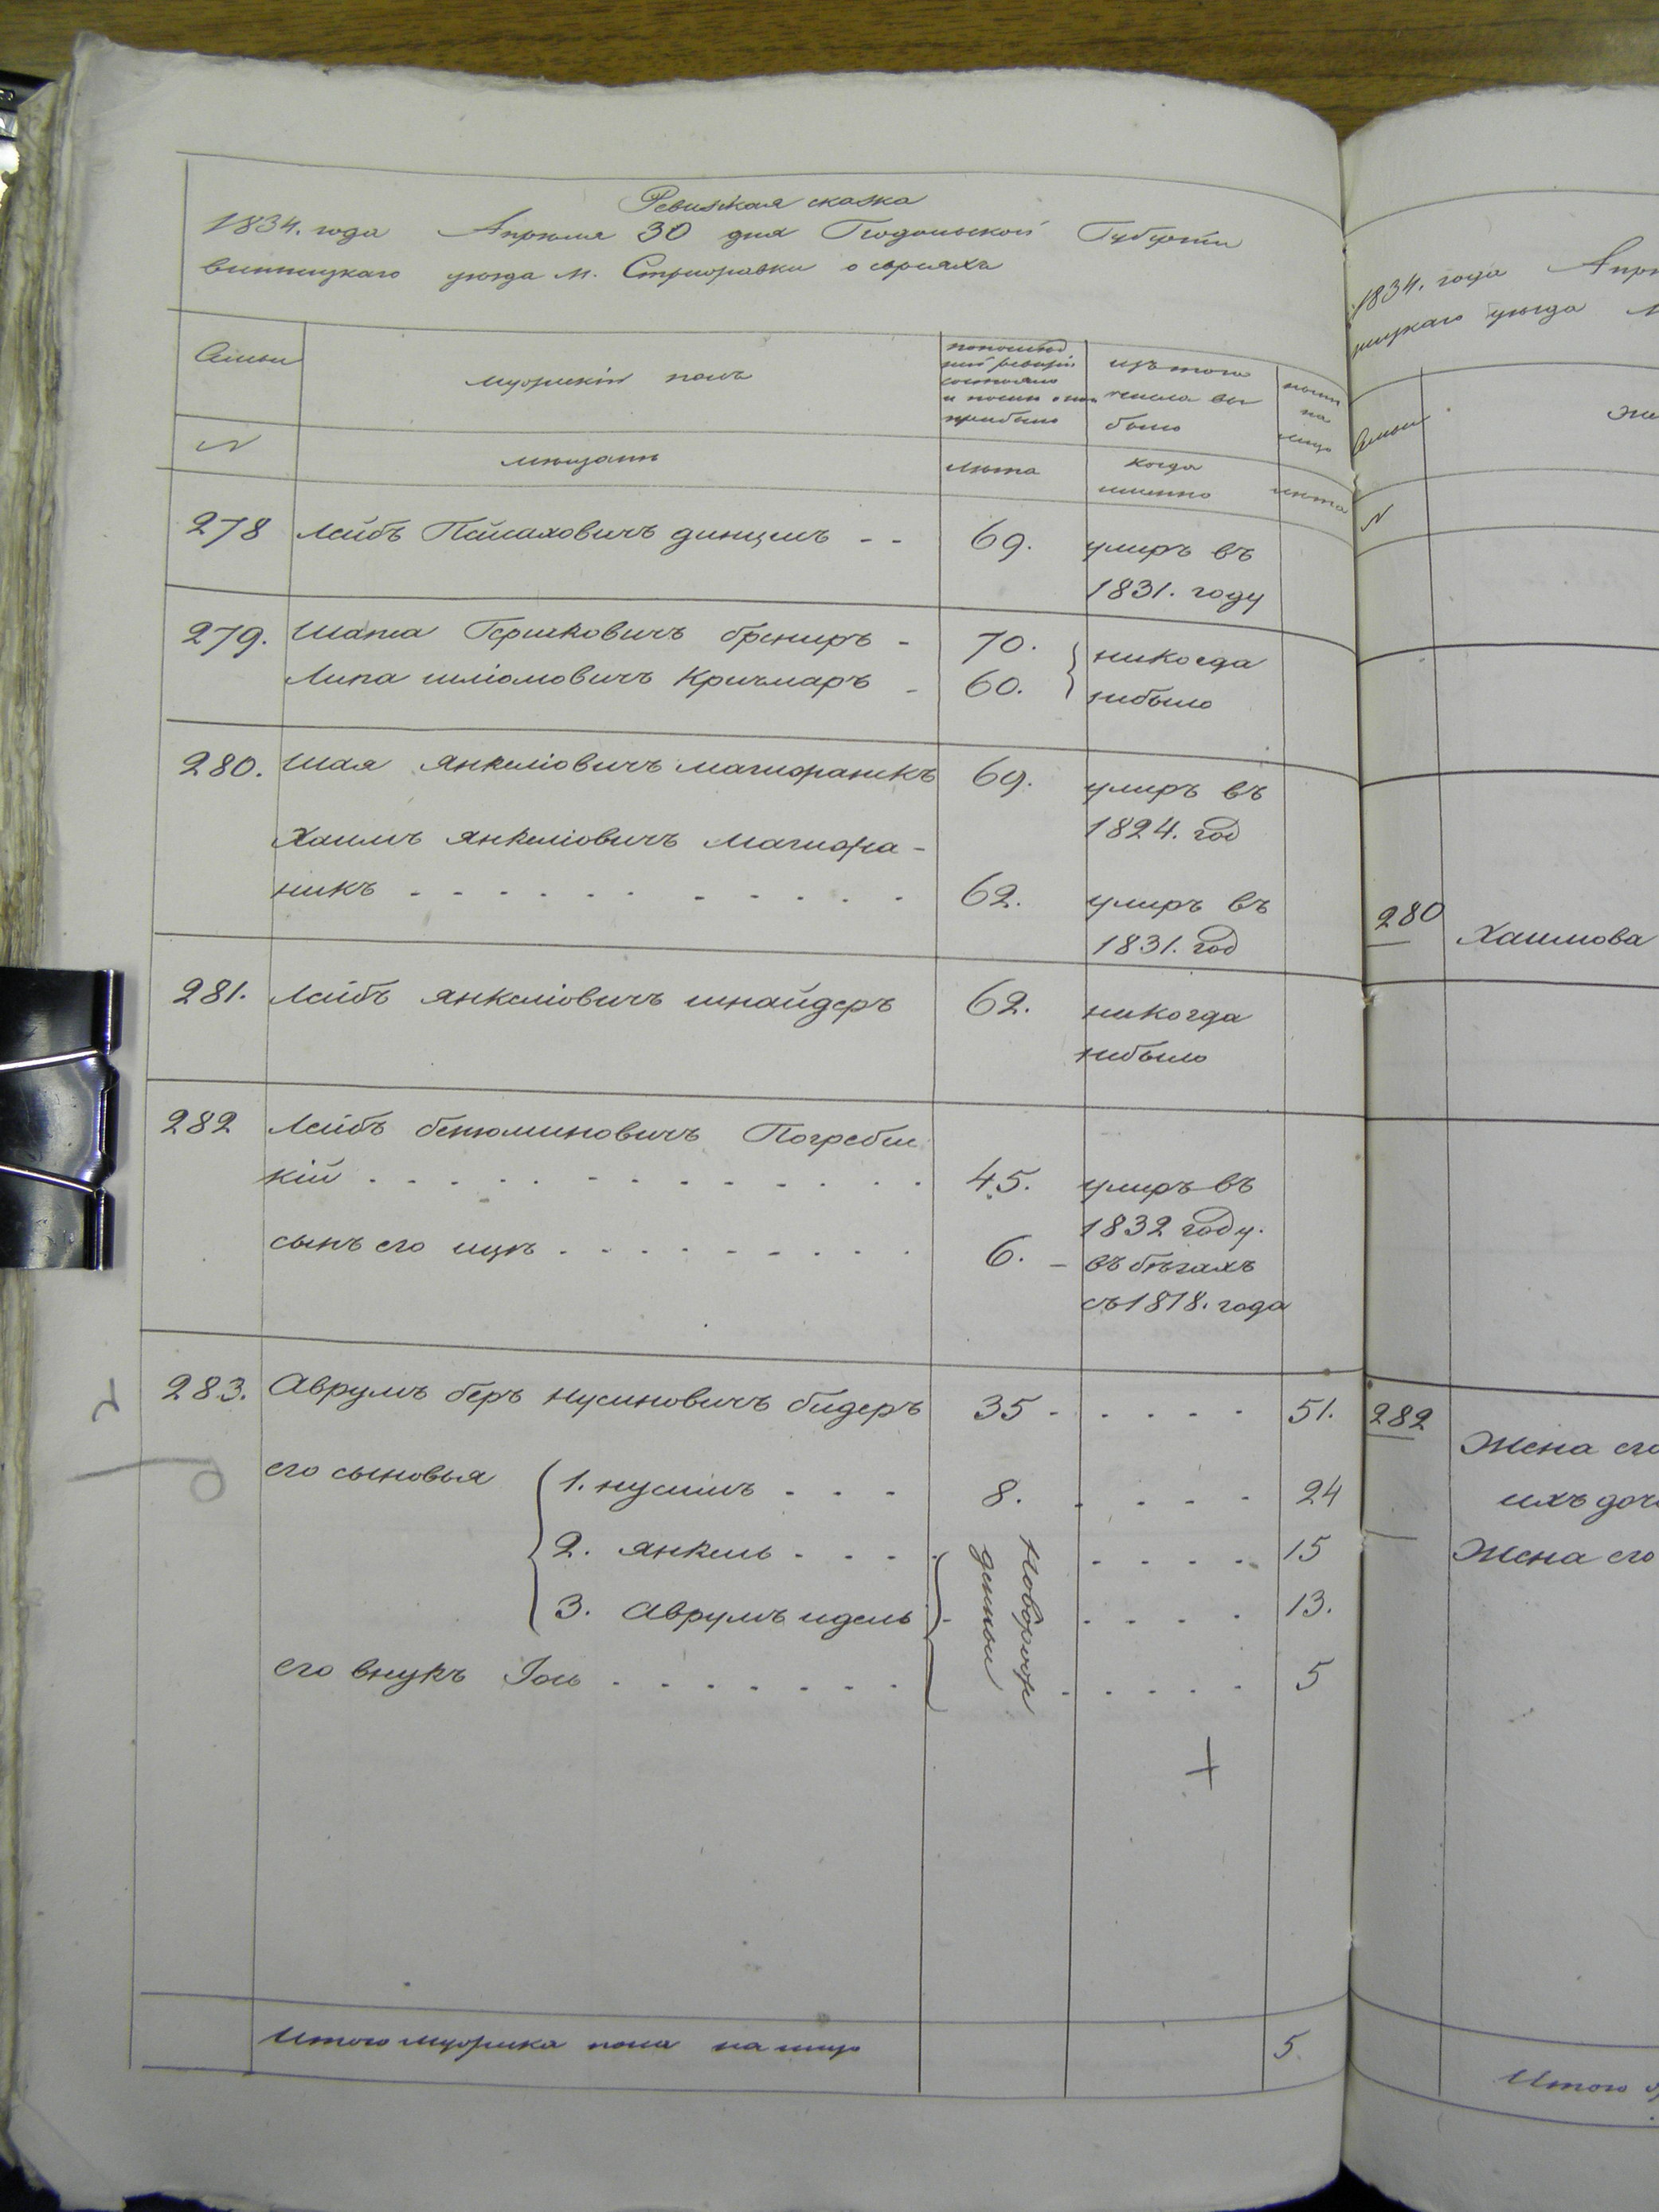 Ревизская сказка
1834. года Апреля 30 дня Подольской Губернии
винницкаго уезда м. Стрижавки о евреяхъ
Семьи
мужескій полъ
по послед
ней ревизіи
состояло
и после она
прибыло
изъ того
числа вы
было
ныне
на
лицо
N
мещане
лета
когда
именно
лета
278 Лейбъ Пейсаховичъ динцисъ - - 69. умиръ въ
1831. году
279. Шапса Гершковичъ брениръ - 70. никогда
Липа шліомовичъ Кричмаръ - 60. небыло
280. Шая янкеліовичъ магидраникъ 69. умиръ въ
1824. год
Хаимъ янкеліовичъ Магидра-
никъ 62. умиръ въ
1831. год
281. Лейбъ янкеліовичъ шнайдеръ 62. никогда
небыло
282 Лейбъ бенюминовичъ Погребис
кій 45. умиръ въ
1832 году.
сынъ его ицкъ 6. - въ бегахъ
съ 1818. года
283. Аврумъ беръ нусиновичъ бидеръ 35 - 51.
его сыновья 1. нусинъ 8. 24
2. янкель 15
3. Аврумъ идель 13.
Новорож
денныи
его внукъ Іось 5
Итого мужеска пола на лицо 5.
1834. года Апр
ницкаго уезда м
Семьи
N
280 Хаимова
282 Жена его
ихъ доч
Жена его
Итого